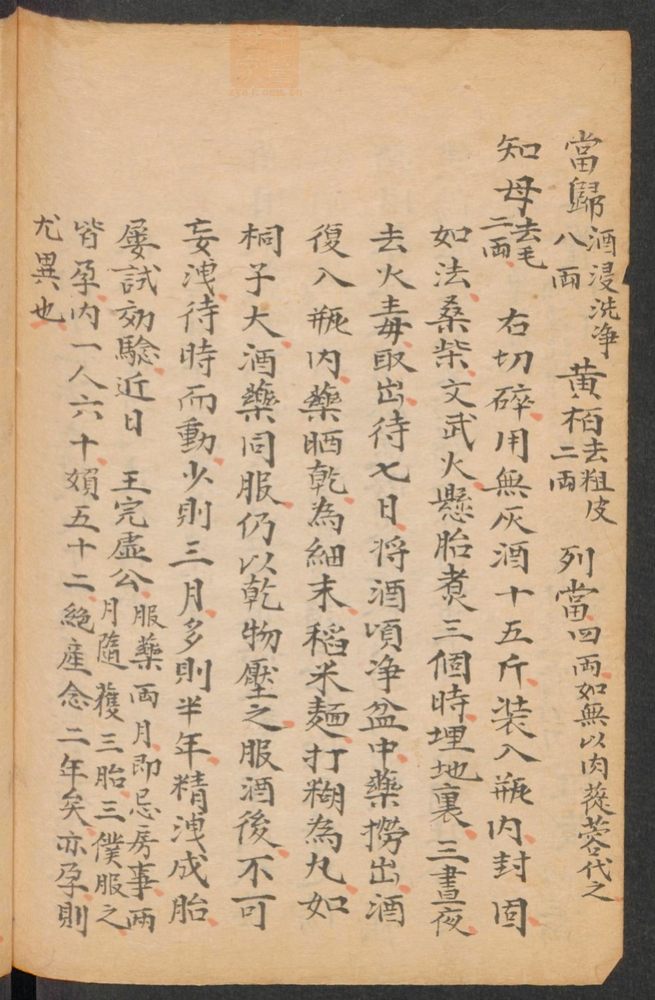 當歸酒浸洗净八兩 黄栢去粗皮二兩 列當四兩如無以肉蓯蓉代之
知母去毛二兩 右切碎用無灰酒十五斤装入瓶内封固
如法桑柴文武火懸胎煮三個時埋地裏三晝夜
去火毒取出待七日将酒頃净盆中藥撈出酒
復入瓶内藥晒乾為細末稻米麺打糊為丸如
桐子大酒藥同服仍以乾物壓之服酒後不可
妄洩待時而動少則三月多則半年精洩成胎
屡試効驗近日 王完虛公服藥兩月即忌房事兩月隨獲三胎三僕服之
皆孕内一人六十頞五十二絶産念二年矣亦孕則
尤異也